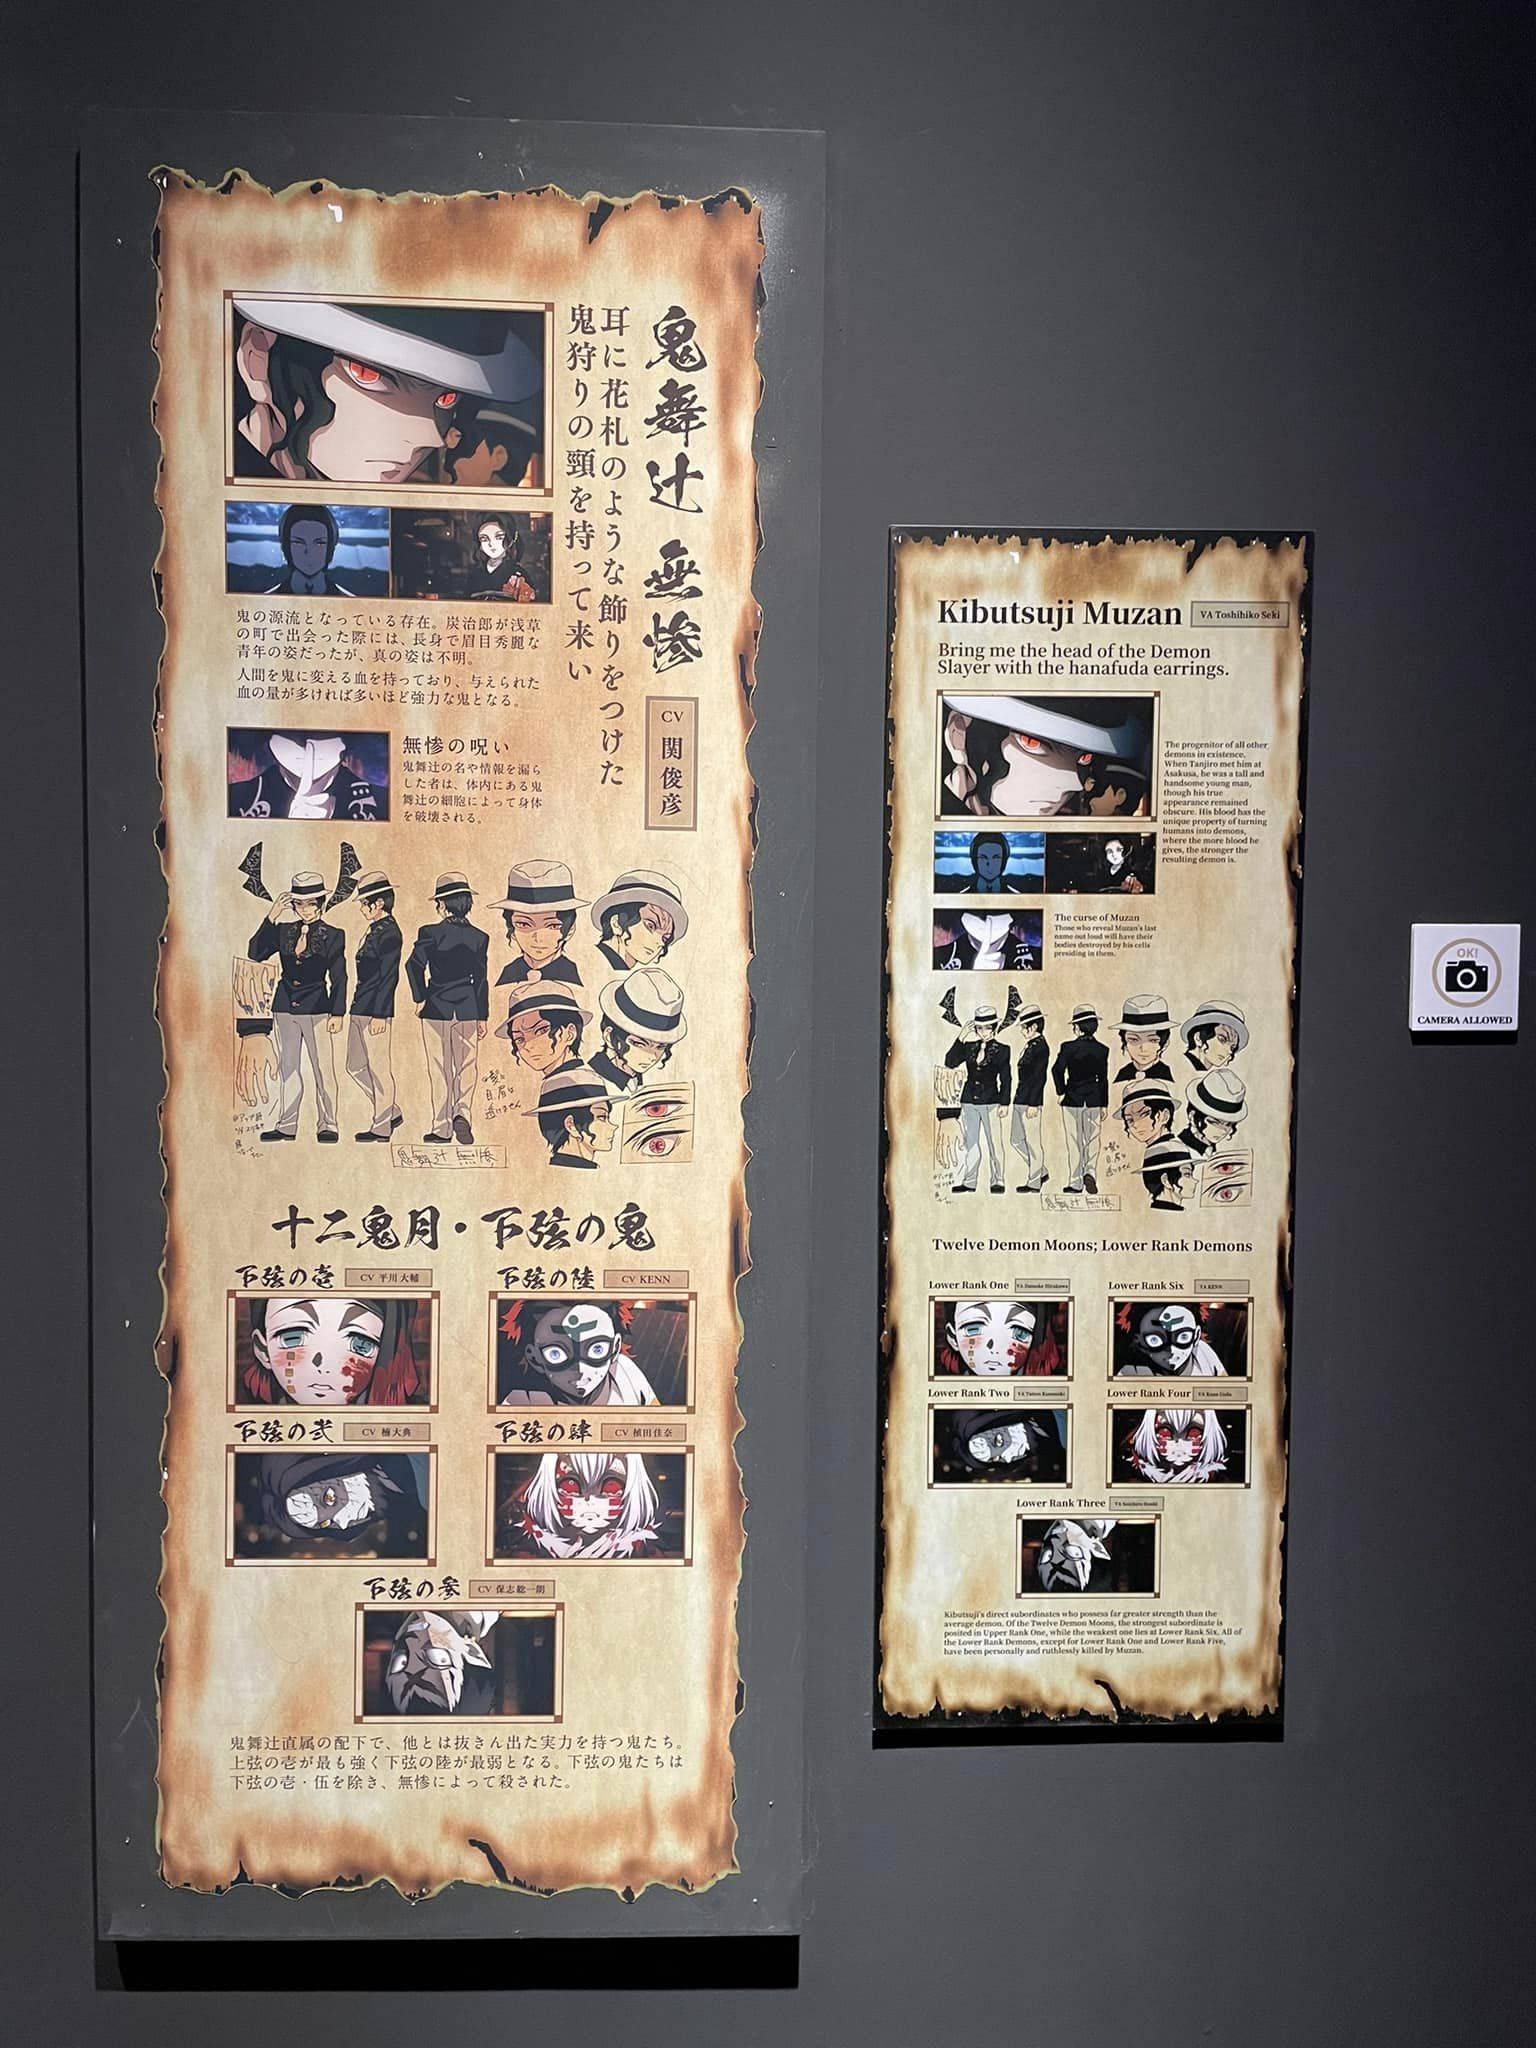 鬼舞辻 無惨
CV 関俊彦
耳に花札のような飾りをつけた
鬼狩りの頸を持って来い
鬼の源流となっている存在。炭治郎が浅草
の町で出会った際には、長身で眉目秀麗な
青年の姿だったが、真の姿は不明。
人間を鬼に変える血を持っており、与えられた
血の量が多ければ多いほど強力な鬼となる。
無惨の呪い
鬼舞辻の名や情報を漏ら
した者は、体内にある鬼
舞辻の細胞によって身体
を破壊される。
目、眉は
透けません
鬼舞辻 無惨
十二鬼月・下弦の鬼
下弦の壱 CV 平川大輔
下弦の陸 CV KENN
下弦の弐 CV 楠大典
下弦の肆 CV 植田佳奈
下弦の参 CV 保志総一朗
鬼舞辻直属の配下で、他とは抜きん出た実力を持つ鬼たち。
上弦の壱が最も強く下弦の陸が最弱となる。下弦の鬼たちは
下弦の壱・伍を除き、無惨によって殺された。
Kibutsuji Muzan VA Toshihiko Seki
Bring me the head of the Demon
Slayer with the hanafuda earrings.
The progenitor of all other
demons in existence.
When Tanjiro met him at
Asakusa, he was a tall and
handsome young man,
though his true
appearance remained
obscure. His blood has the
unique property of turning
humans into demons,
where the more blood he
gives, the stronger the
resulting demon is.
The curse of Muzan
Those who reveal Muzan's last
name out loud will have their
bodies destroyed by his cells
presiding in them.
目、眉は
透けません
鬼舞辻 無惨
Twelve Demon Moons; Lower Rank Demons
Lower Rank One VA Daisuke Hirakawa
Lower Rank Six VA KENN
Lower Rank Two VA
Lower Rank Four VA Kana Ueda
Lower Rank Three VA
Kibutsuji's direct subordinates who possess far greater strength than the
average demon. Of the Twelve Demon Moons, the strongest subordinate is
posited in Upper Rank One, while the weakest one lies at Lower Rank Six. All of
the Lower Rank Demons, except for Lower Rank One and Lower Rank Five,
have been personally and ruthlessly killed by Muzan.
OK!
CAMERA ALLOWED